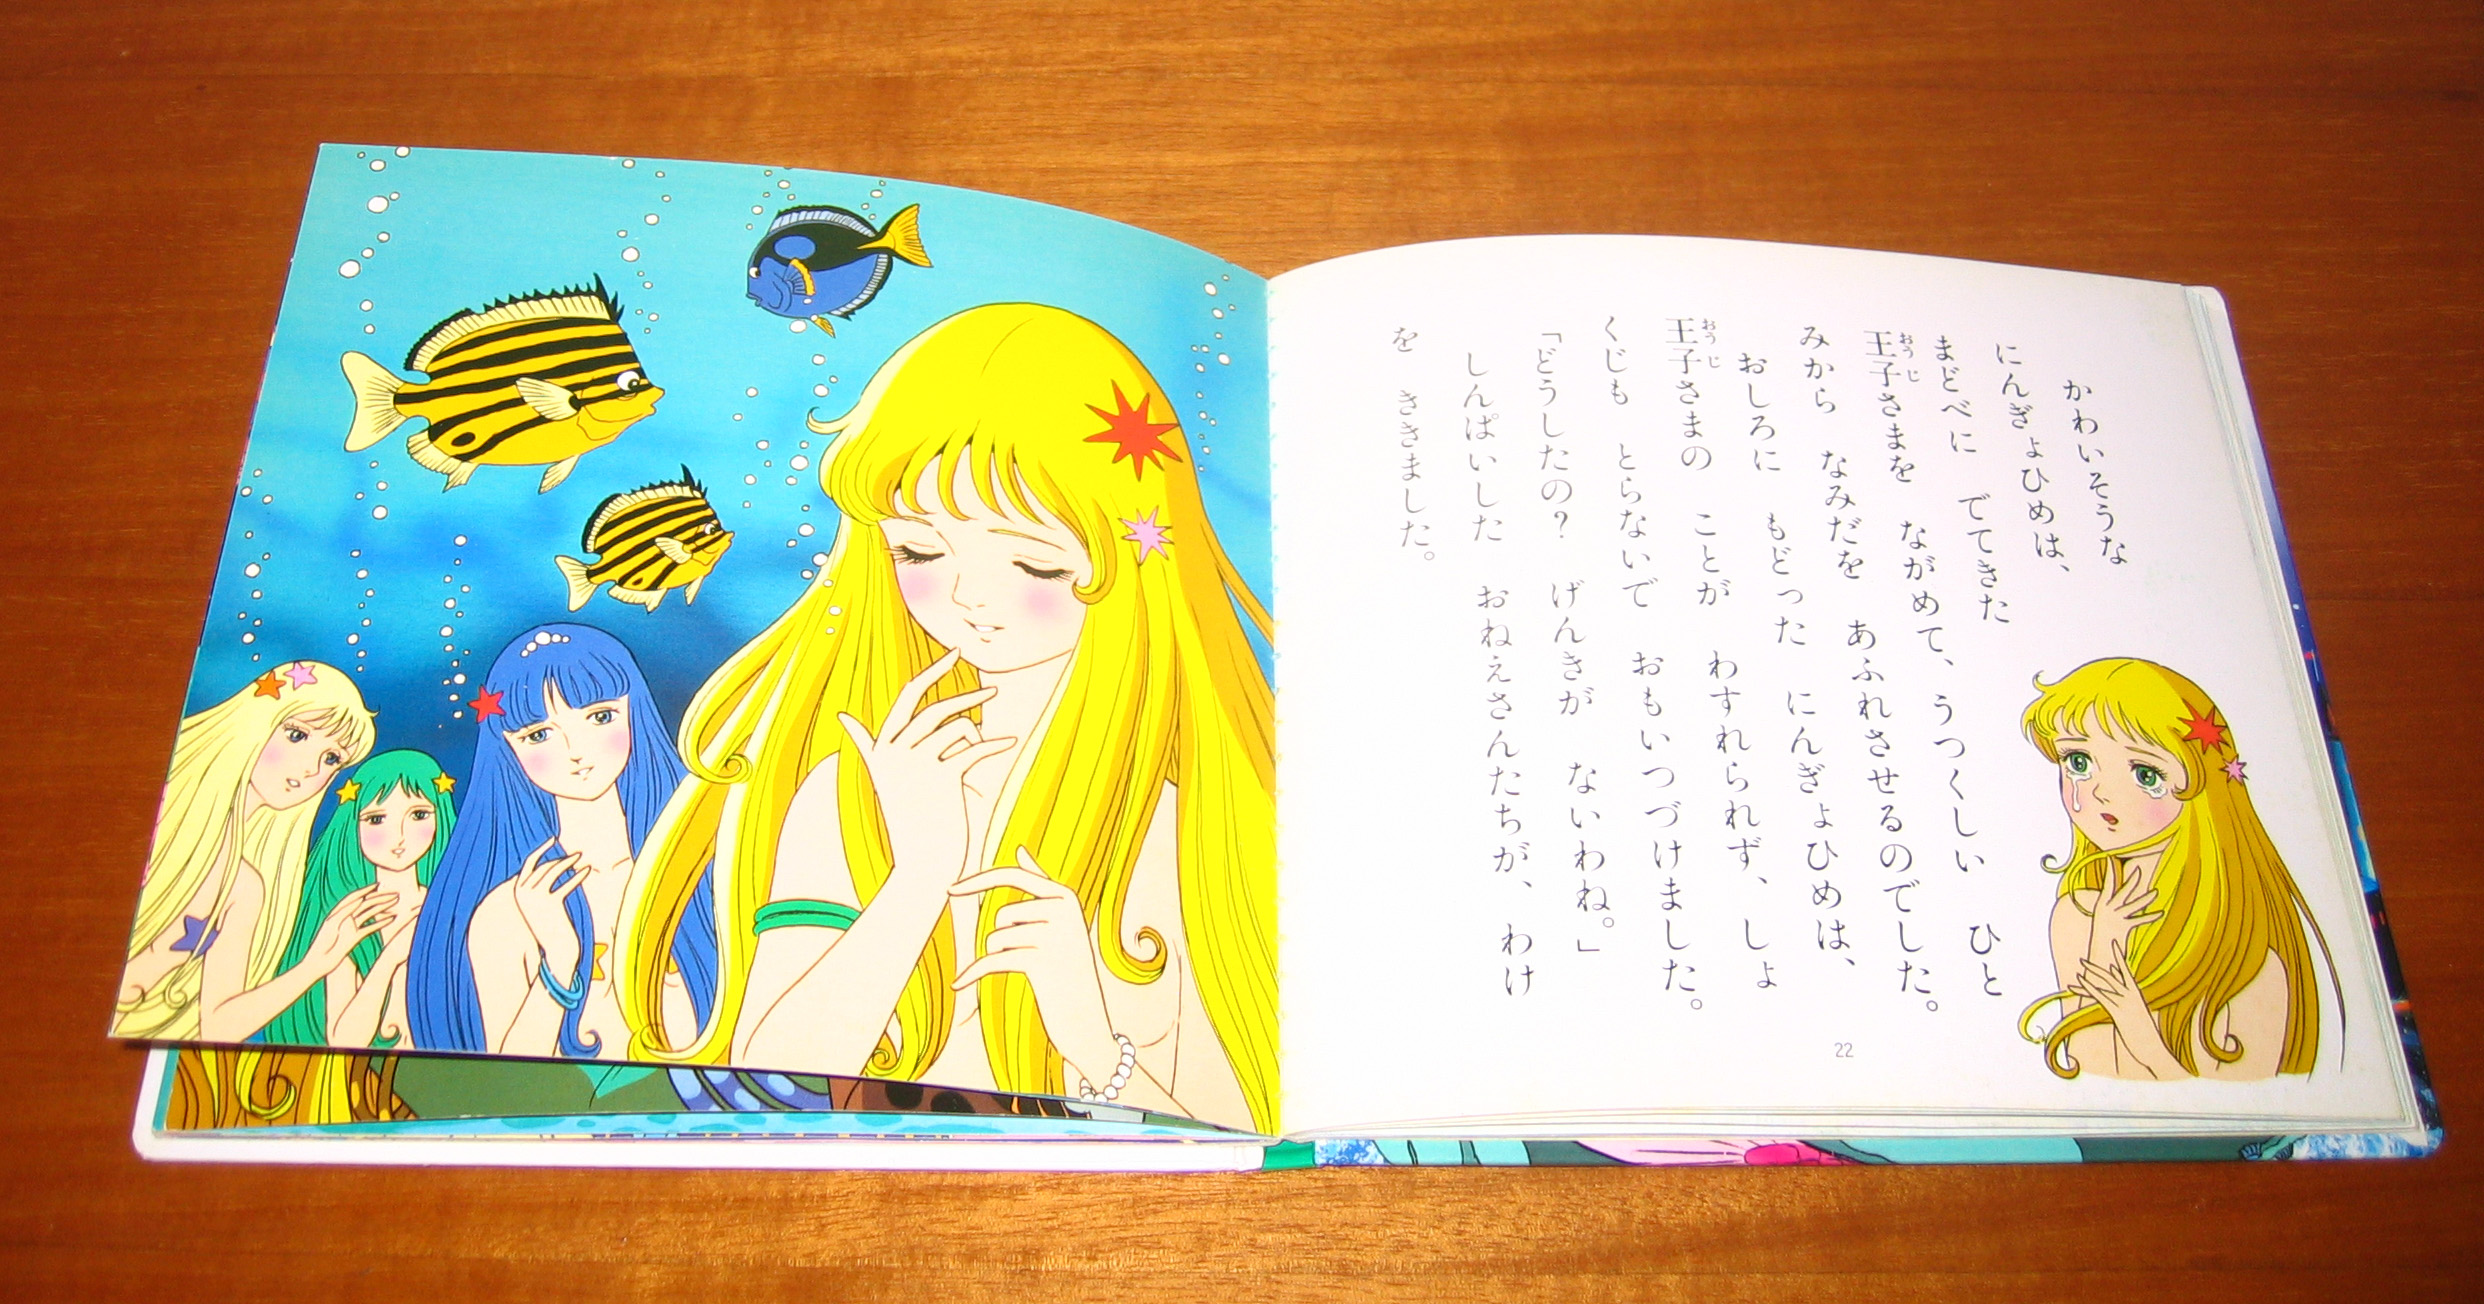 かわいそうな
にんぎょひめは、
まどべに　でてきた
王子さまを　ながめて、うつくしい　ひと
みから　なみだを　あふれさせるのでした。
おしろに　もどった　にんぎょひめは、
王子さまの　ことが　わすれられず、しょ
くじも　とらないで　おもいつづけました。
「どうしたの？　げんきが　ないわね。」
しんぱいした　おねえさんたちが、わけ
を　ききました。
22